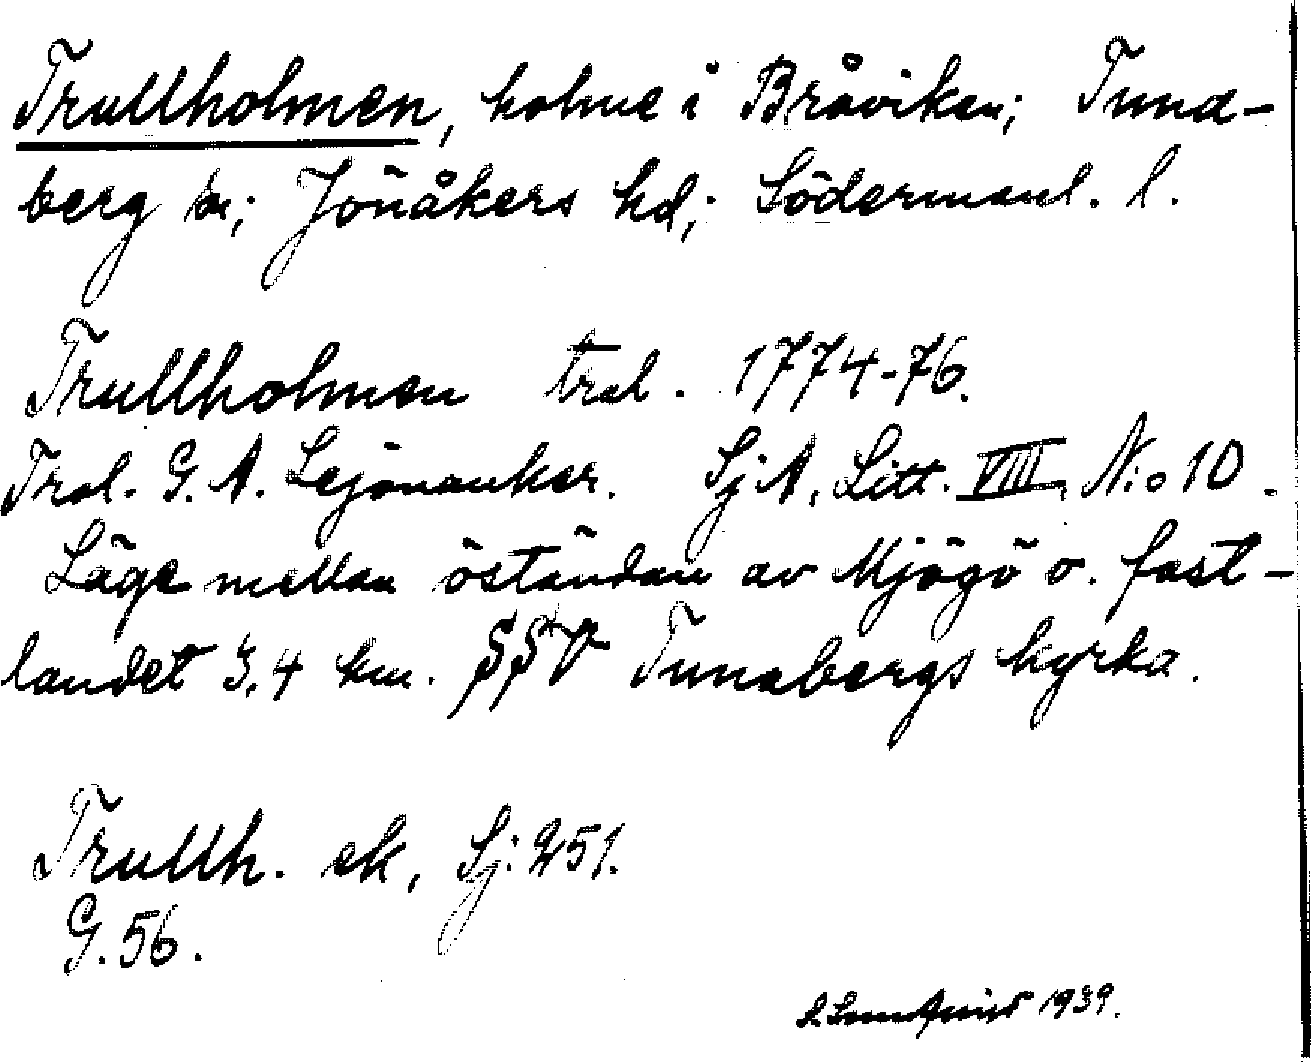 Trullholmen, holme i Bråviken; Tuna-
berg sn; Jönåkers hd; Södermanl. l.
Trullholmen trol. 1774-76.
Trol. G. A. Lejonanker. SjA, Litt. VIII, N:o 10.
Läge mellan öständan av Mjögö o. fast-
landet 3,4 km. SSV Tunabergs kyrka.
Trullh. ek, Sj: 251.
G. 56.
1939.